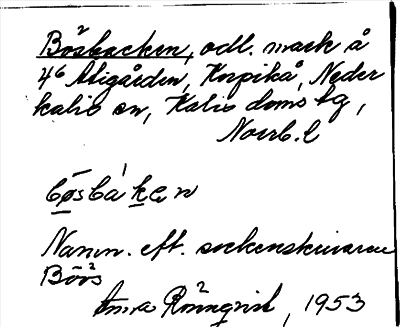 Bösbacken, odl. mark å
46 Stigården, Korpikå, Neder
kalix sn, Kalix doms tg,
Norrb. l
bøsbakɛn
Namn. eft. sockenskrivaren
Böös
Anna Rönnqvist, 1953